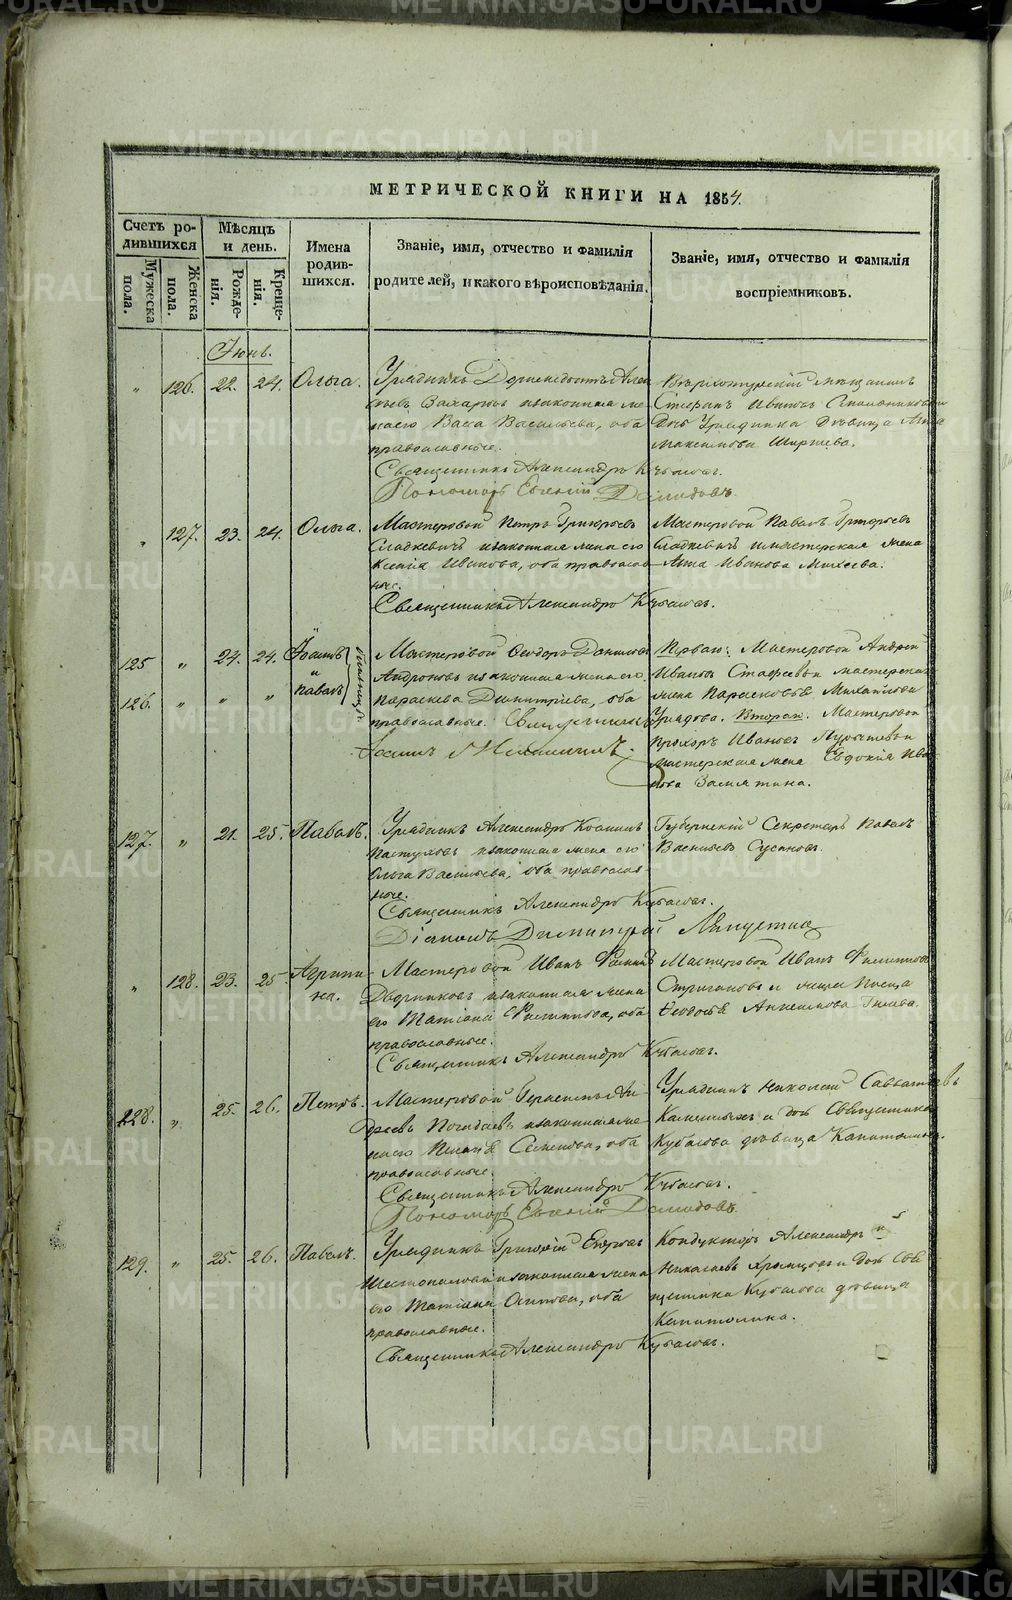 METRIKI.GASO-URAL.RU
МЕТРИЧЕСКОЙ КНИГИ НА 1854.
Счетъ родившихся
Мужеска пола.
Женска пола.
Мѣсяцъ и день.
Рожденія.
Крещенія.
Имена родившихся.
Званіе, имя, отчество и фамилія
родителей, и какого вѣроисповѣданія.
Званіе, имя, отчество и фамилія
воспріемниковъ.
Іюнь.
„ 126. 22. 24. Ольга.
Урядникъ
Захаровъ и законная же-
на его Васса Васильева, оба
православные.
Священникъ Александръ Кубасовъ.
Пономарь Евгеній Демидовъ.
Верхотурскій мѣщанинъ
Стефанъ Ивановъ
Дочь Урядника Дѣвица Анна
Максимова Ширяева.
„ 127. 23. 24. Ольга.
Мастеровой Петръ Григорьевъ
Сладкевичъ и законная жена его
Ксенія Иванова, оба православ-
ные.
Священникъ Александръ Кубасовъ.
Мастеровой Павелъ Григорьевъ
Сладкевичъ и мастерская жена
Анна Иванова Михеева.
125 „ 24. 24. Іоаннъ
и
126. „ „ „ Павелъ
близнецы.
Мастеровой Ѳеодоръ Даниловъ
Андроновъ и законная жена его
Параскева Димитріева, оба
православные. Священникъ
Іоаннъ
Перваго: Мастеровой Андрей
Ивановъ Стафеевъ и мастерская
жена Парасковья Михайлова
Урядова. Втораго: Мастеровой
Прохоръ Ивановъ
мастерская жена Евдокія Ива-
нова Замятина.
127. „ 21. 25. Павелъ.
Урядникъ Александръ Іоанновъ
Пастуховъ и законная жена его
Ольга Васильева, оба православ-
ные.
Священникъ Александръ Кубасовъ.
Діаконъ Димитрій Ляпустинъ
Губернскій Секретарь Павелъ
Васильевъ Сусановъ.
„ 128. 23. 25. Агрипи-
на.
Мастеровой Иванъ
Дворниковъ и законная жена
его Татіана Филиппова, оба
православные.
Священникъ Александръ Кубасовъ.
Мастеровой Иванъ Филипповъ
Стригановъ и
Ѳеодосья
128. „ 25. 26. Петръ.
Мастеровой Герасимъ Ан-
дреевъ Погадаевъ и законная же-
на его Пелагея Семенова, оба
православные.
Священникъ Александръ Кубасовъ.
Пономарь Евгеній Демидовъ.
Урядникъ Николай Савватіевъ
и дочь Священника
Кубасова дѣвица Капитолина.
129. „ 25. 26. Павелъ.
Урядникъ Григорій Егоровъ
Шестопаловъ и законная жена
его Татіана Осипова, оба
православные.
Священникъ Александръ Кубасовъ.
Кондукторъ Александръ
Николаевъ Храмцовъ и дочь Свя-
щенника Кубасова дѣвица
Капитолина.